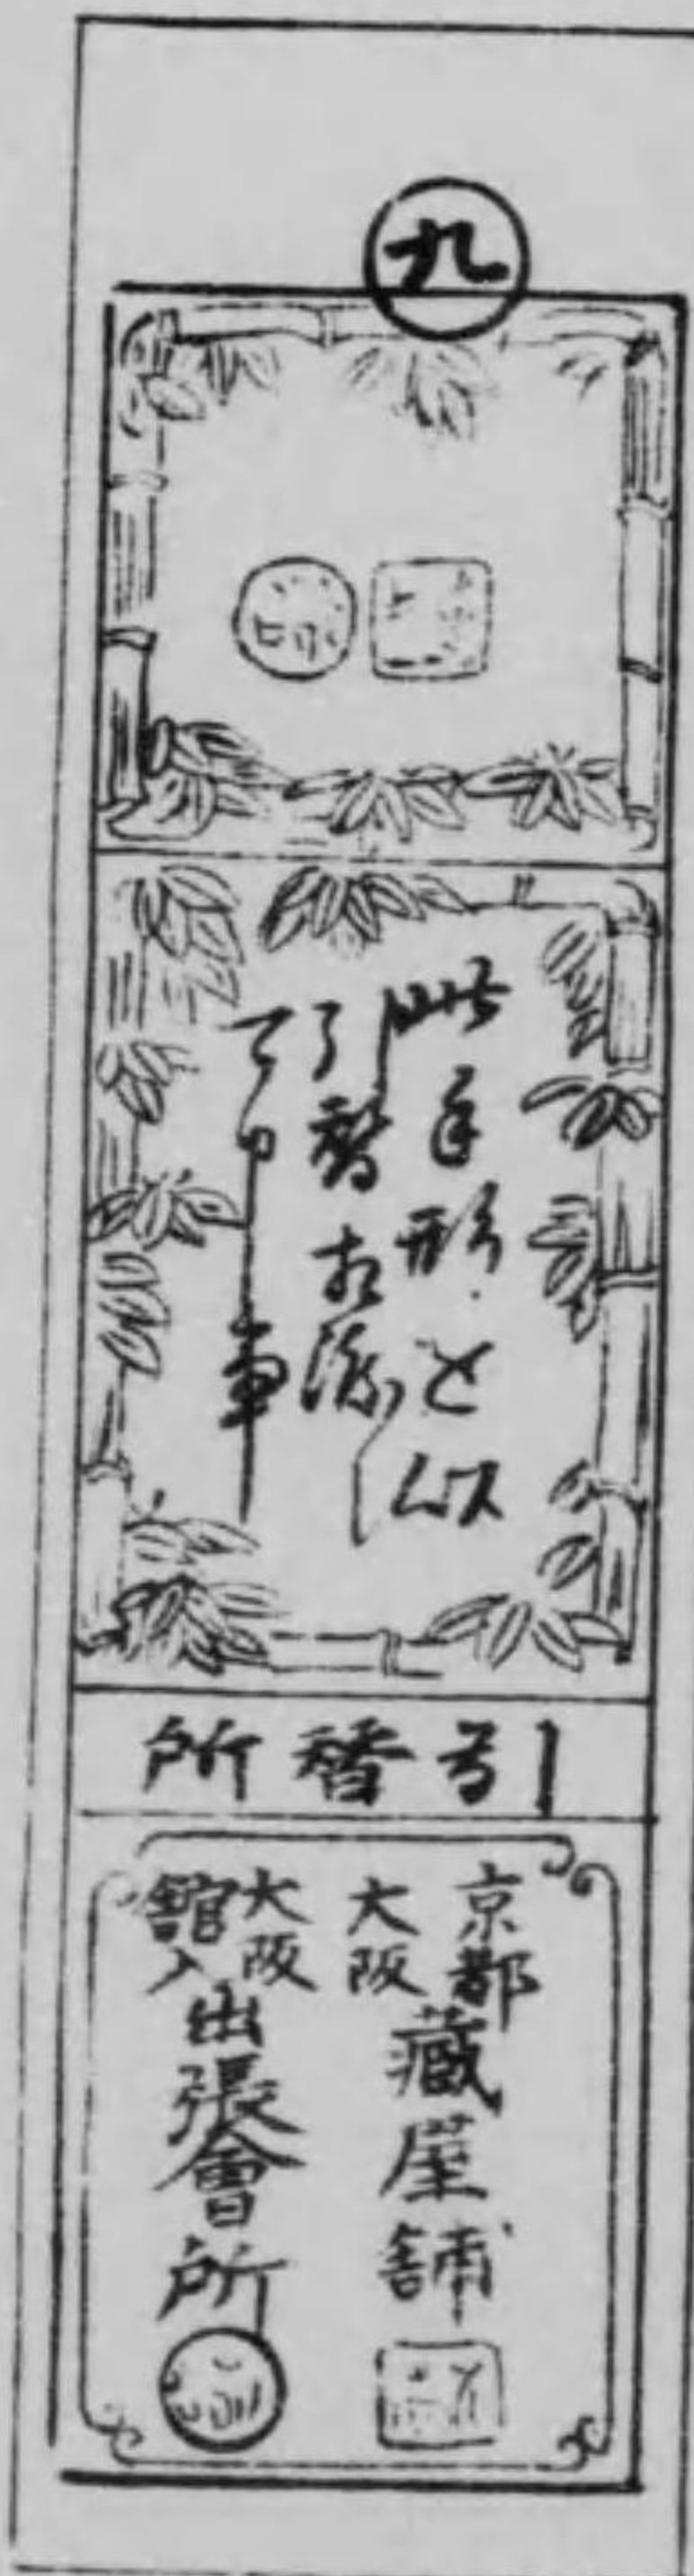 九
此手形を以
引替相渡
可申事
引替所
京都
大阪
蔵屋舗
大阪
館入
出張會所